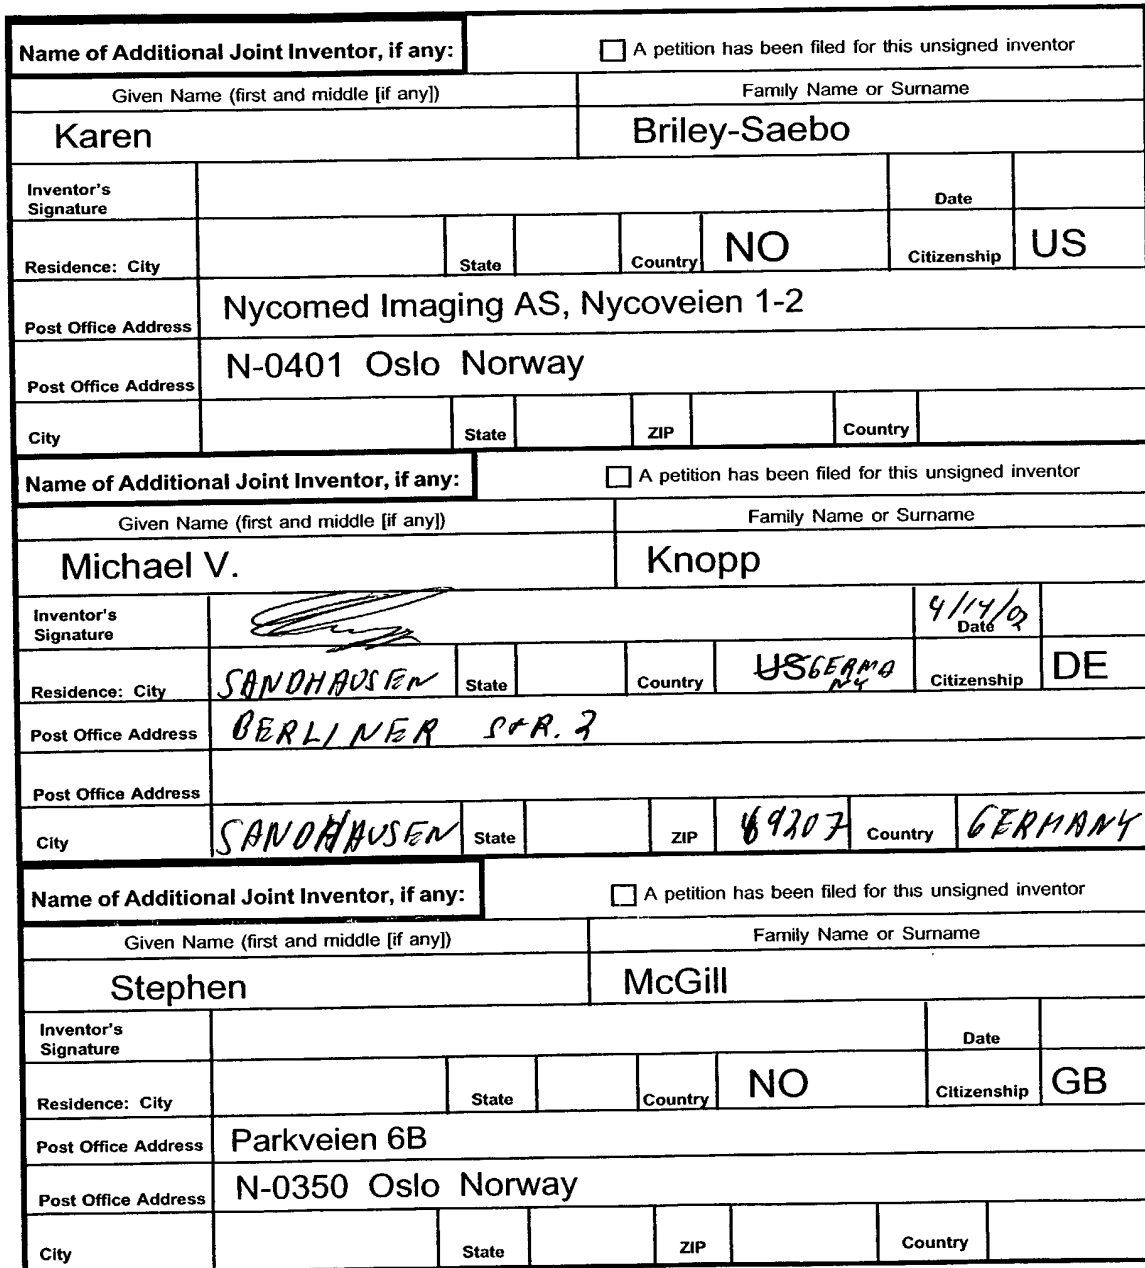 Name of Additional Joint Inventor, if any: A petition has been filed for this unsigned inventor
Given Name (first and middle [if any]) Family Name or Surname
Karen Briley-Saebo
Inventor's Signature Date
Residence: City State Country NO Citizenship US
Post Office Address Nycomed Imaging AS, Nycoveien 1-2
Post Office Address N-0401 Oslo Norway
City State ZIP Country
Name of Additional Joint Inventor, if any: A petition has been filed for this unsigned inventor
Given Name (first and middle [if any]) Family Name or Surname
Michael V. Knopp
Inventor's Signature 4/14/02 Date
Residence: City SANDHAUSEN State Country US GERMANY Citizenship DE
Post Office Address BERLINER STR. 2
Post Office Address
City SANDHAUSEN State ZIP 69207 Country GERMANY
Name of Additional Joint Inventor, if any: A petition has been filed for this unsigned inventor
Given Name (first and middle [if any]) Family Name or Surname
Stephen McGill
Inventor's Signature Date
Residence: City State Country NO Citizenship GB
Post Office Address Parkveien 6B
Post Office Address N-0350 Oslo Norway
City State ZIP Country